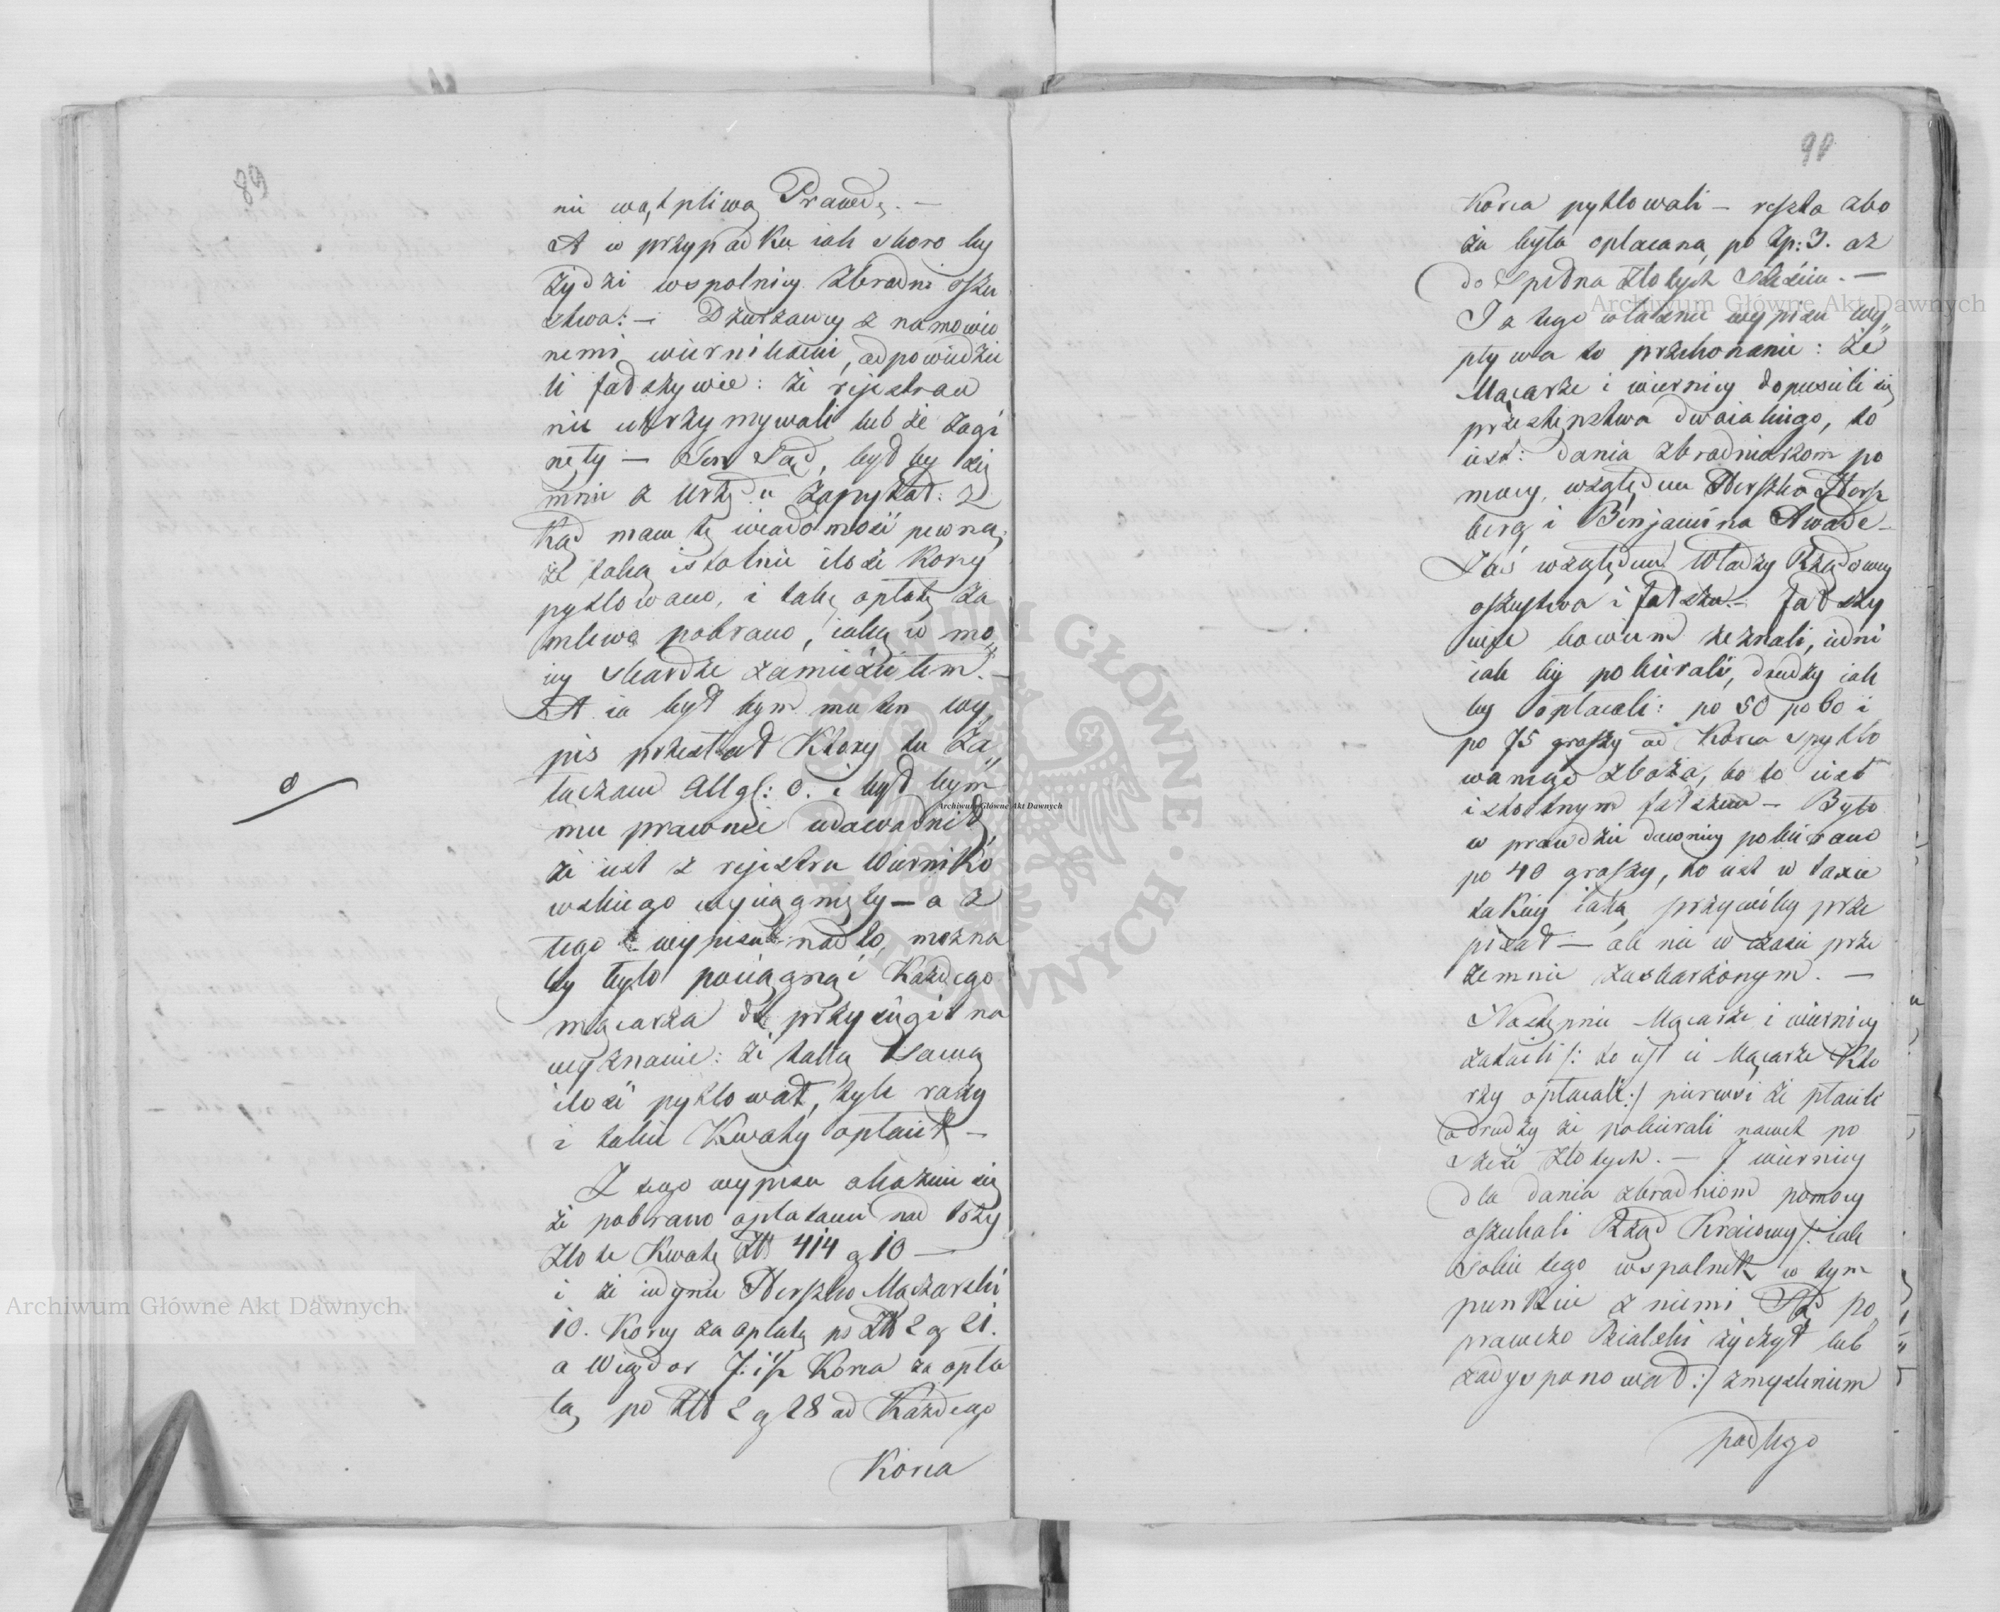 89
nie wątpliwą Prawdę. —
A w przypadku iak skoro by
Żydzi wspolnicy zbrodni oszu
stwa: — Dzierżawcy z namowio
nemi wiernikami, odpowiedzie
li fałszywie: że rejestrow
nie utrzymywali lub że zagi
nęły — Ten Sąd, był by się
mnie z Urzędu zapytał: z
kąd mam tę wiadomość pewną,
że taką istotnie ilość Korcy
pytlowano, i taką opłatę za
mlewo pobrano, iaką w mo„
iey skardze zamieściłem. —
A ia był bym mu ten wy„
pis przesłał Ktory tu za„
łączam Allgl: O. i był bym
mu prawnie udowodnił,
że iest z rejestru Wierniko
wskiego wyciągnięty — a z
tego wypisu nadto, można
by było pociągnąć Każdego
mącarza do przysiągi na
wyznanie: że taką samą
ilość pytlował, tyle razy
i takie Kwoty opłacił —
Z tego wypisu okazuie się
że pobrano opłatami nad trzy
złote Kwotę Złł 414 g 10 —
i że iedynie Herszko Mączarski
10. Korcy za opłatą po Złł 2 g 21.
a Wigdor J: i ½ Korca za opła
tą po Złł 2 g 28 od Każdego
Korca
O
90
Korca pytlowali — reszta zbo
ża była opłacana po Zp: 3. aż
do spełna złotych sześciu. —
I z tego właśnie wypisu wy„
pływa to przekonanie: że
Mącarze i wiernicy dopuścili się
przestępstwa dwoiakiego, to
iest: dania zbrodniarzom po
mocy, względem Herszka Stern
berg i Benjamina Awade —
Zaś względem Władzy Rządowey
oszustwa i fałszu. — Fałszy
wie bowiem zeznali, iedni
iak by pobierali, drudzy iak
by opłacali: po 50 po 60 i
po 75 groszy od Korca spytlo
wanego zboża, bo to iest
istotnym fałszem — Było
w prawdzie dawniey pobierano
po 40 groszy, to iest w taxie
takiey iaką przywiley prze
pisał — ale nie w czasie prze
zemnie zaskarżonym. —
Następnie Mącarze i wiernicy
zataili /: to iest ci Mącarze Kto
rzy opłacali :/ pierwsi że płacili
a drudzy że pobierali nawet po
sześć złotych. — I wiernicy
dla dania zbrodniom pomocy
oszukali Rząd Kraiowy /: iak
sobie tego wspolnik w tym
punkcie z niemi Sąd po„
prawczo Bialski życzył lub
zadysponował :/ zmyśleniem
podług